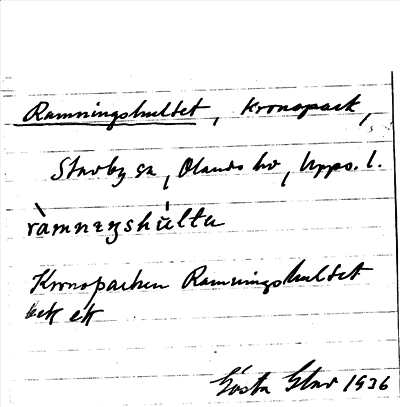 Ramningshultet, Kronopark,
Stavby sn, Olands hd, Upps. l.
ràmnıŋshúltə
Kronoparken Ramningshultet
ek ek
Gösta Stav 1936